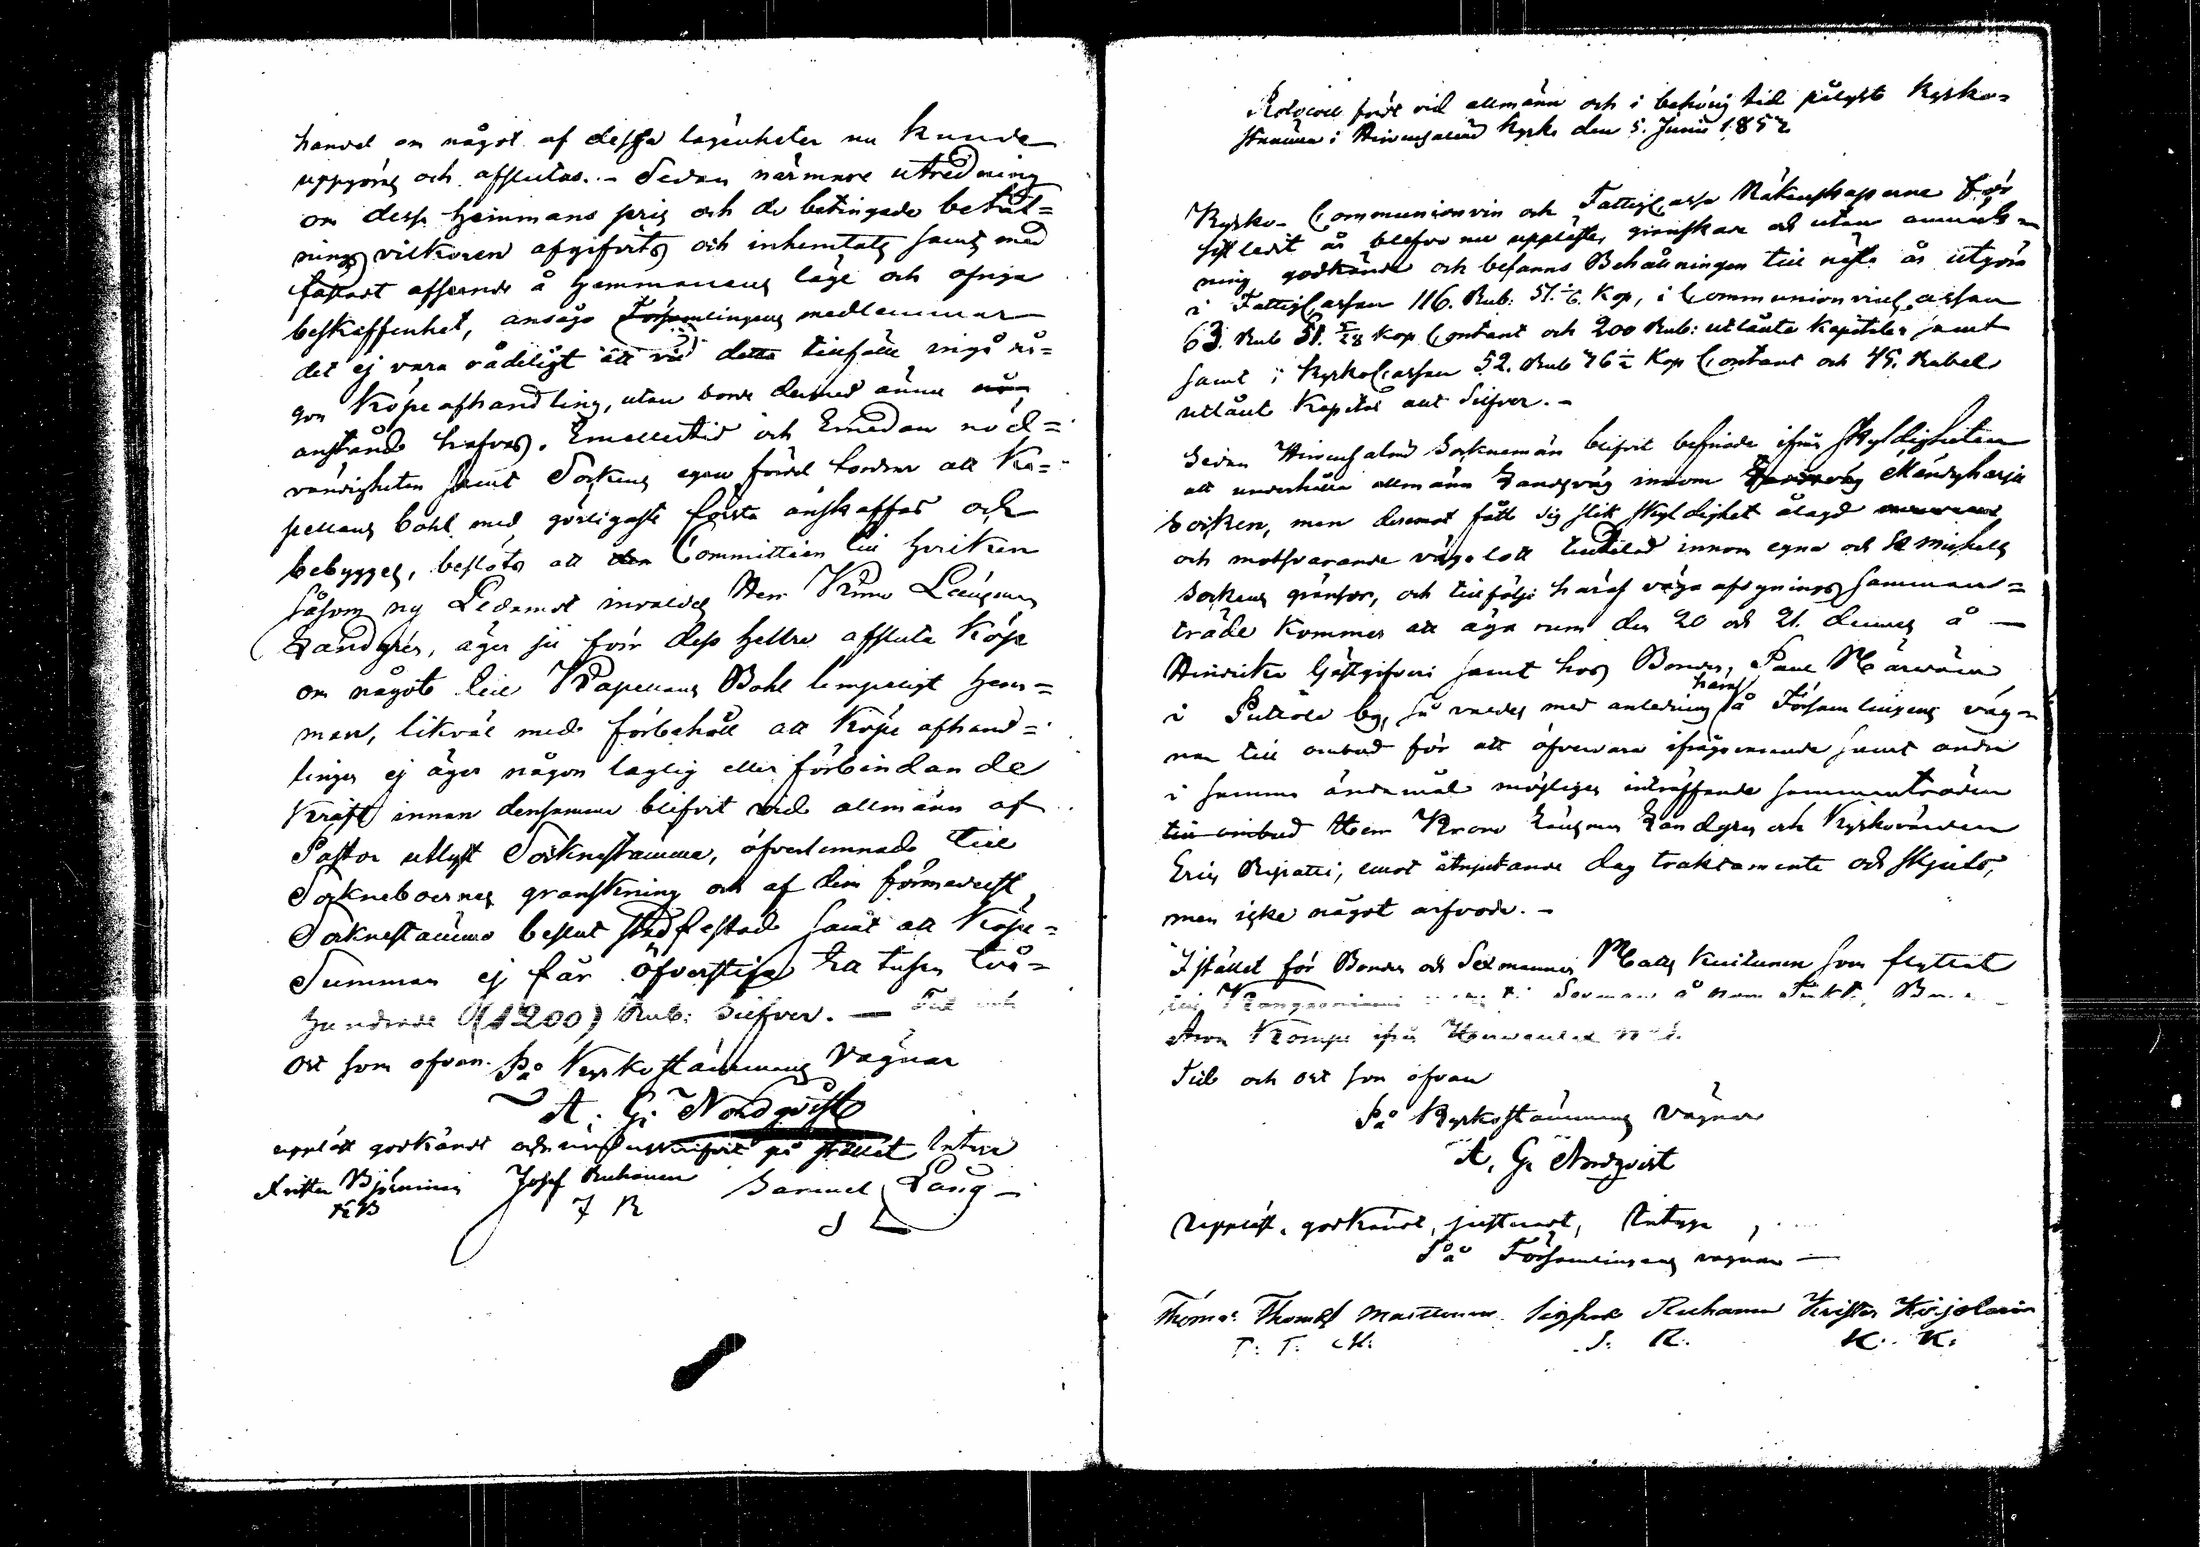 handel om något af dessa lägenheter nu kunde
uppgöras och afslutas. – Sedan närmare utredning
om dess Hemmans pris och de betingade betal=
nings vilkoren afgifvits och inhemtats samt med
fästadt afseende å Hemmanens läge och öfriga
beskaffenhet, ansågo Församlingens medlemmar
det ej vara rådeligt att vid detta tillfälle ingå nå=
gon Köpe afhandling, utan borde dermed ännu
anstånd hafvas. Emellertid och Emedan nöd=
vändigheten samt Sockens egen fördel fordrar att Ka=
pellans bohl med görligaste första anskaffas och
bebygges, beslöts att Committeen till hvilken
såsom ny Ledamot invaldes Herr Krono Länsman
Landgrén, äger ju förr dess hellre afsluta Köp
om något till Kapellans Bohl lämpeligt Hem=
man, likväl med förbehåll att Köpe afhand=
lingen ej äger någon laglig eller förbindande
Kraft innan densamma blifvit vid allmän af
Pastor utlyst Socknestämma, öfverlemnad till
Sockneboernes granskning och af dem förmedelst
Socknestämmo beslut stadfestad samt att Köpe=
Summan ej får öfverstiga Ett tusen två=
hundrade (1200) Rub: Silfver. — Tid och
Ort som ofvan. På Kyrkostämmans vägnar
A. G. Nordqvist
uppläst godkändt och underskrifvit på stället Intyga
Kristler Björninen Josef Ruhanen Samuel Lang
KB J R S L
Protocoll fördt vid allmän och i behörig tid pålyst Kyrko=
stämma i Hirvensalmi Kyrka den 5. Junii 1852
Kyrko- Communionvin och FattigCassa Räkenskaperne för
sistledit år blefvo nu uppläste, granskade och utan anmärk=
ning godkände och befanns Behållningen till nästa år utgöra
i FattigCassan 116. Rub: 51. Kop, i CommunionvinsCassan
63. Rub 51. Kop Contant och 200 Rub: utlånte Kapitaler samt
samt i KyrkoCassan 52. Rub 76½ Kop Contant och 45. Rubel
utlånt Kapital allt Silfver. –
Sedan Hirvensalmi Socknemän blifvit befriade ifrån Skyldigheten
att underhålla allmänn Landsväg innom Mäntyharju
Socken, men deremot fått sig slik skyldighet ålagd
och motsvarande väga lott tilldelad innom egna och St Michels
Sockens gränsor, och till följe häraf väga afsynings samman=
träde kommer att äga rum den 20 och 21. dennes å —
Hinriks Gästgifveri samt hos Bonden, Paul
i Pullola by, så valdes med anledning häraf å Församlingens väg=
nar till ombud för att öfvervara ifrågavarande samt andra
i samma ändamål möjligen inträffande sammanträden
till ombud Herr Krono Länsman Landgrén och Kyrkovärden
Eric Ripatti, emot åtnjutande dag traktamente och skjuts,
men icke något arfvode. –
I stället för Bonden och Sexmannen Matts Kuitunen som flyttat
till Kangasniemi Sexman å
Aron Komppi ifrån
Tid och ort som ofvan
På Kyrkostämmans vägnar
A. G. Nordqvist
Uppläst, godkändt, justeradt, Intyga
På Församlingens vägnar —
Thomas Thomasson Marttinen Sigfrid Ruhanen Krister Kirjolainen
T. T. M. S. R. K. K.